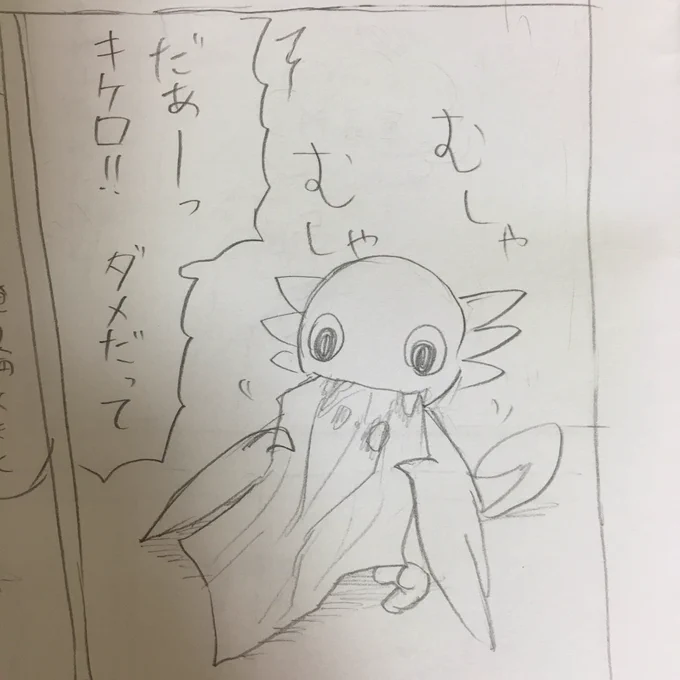 むしゃ
むしゃ
だあーっ
キケロ!! ダメだって